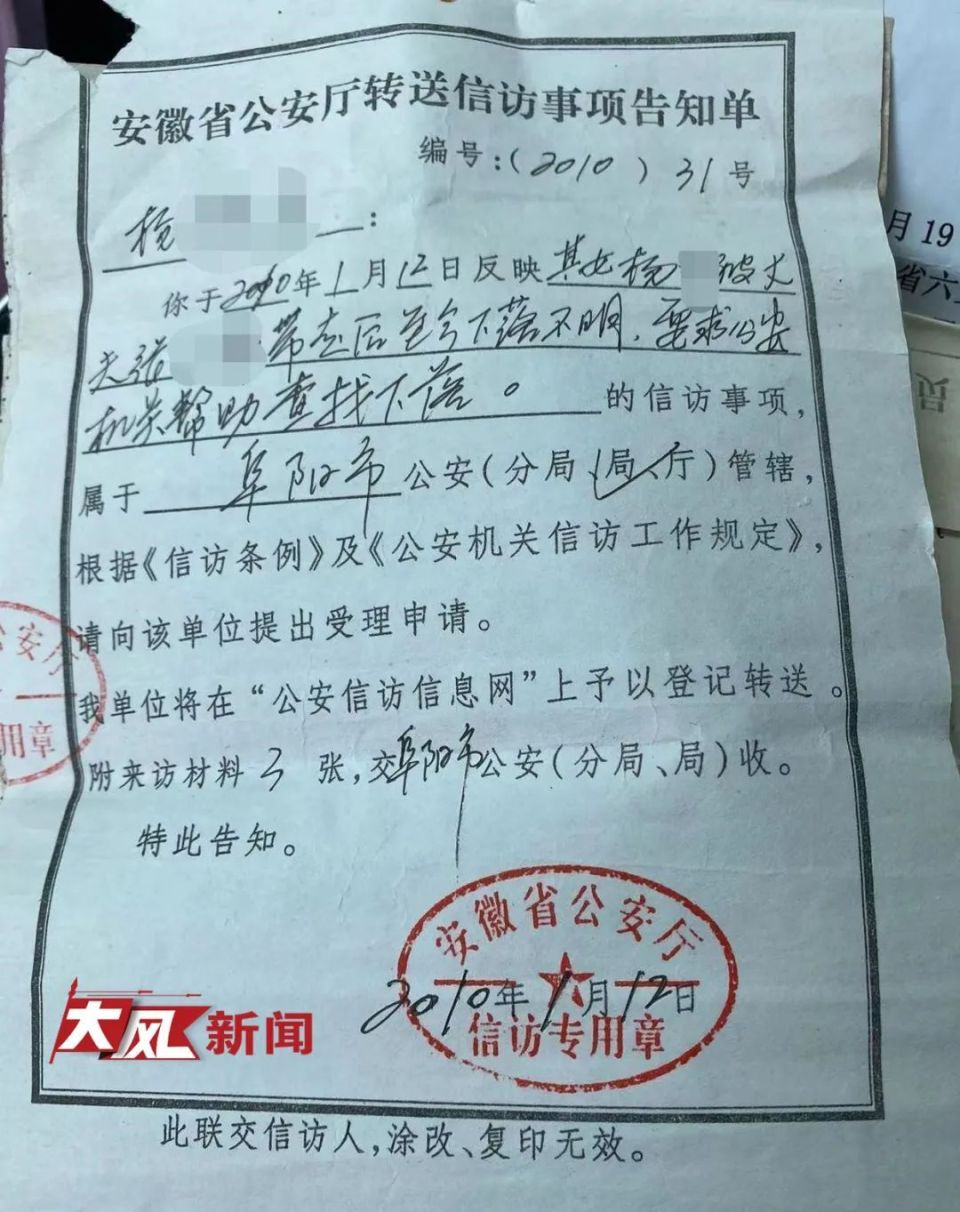 安徽省公安厅转送信访事项告知单
编号:(2010)31号
:
你于2010年1月12日反映其女杨 被丈
夫张 带走后至今下落不明,要求公安
机关帮助查找下落。 的信访事项,
属于 阜阳市 公安(分局、局、厅)管辖,
根据《信访条例》及《公安机关信访工作规定》,
请向该单位提出受理申请。
我单位将在“公安信访信息网”上予以登记转送。
附来访材料3张,交阜阳市公安(分局、局)收。
特此告知。
安徽省公安厅
2010年1月12日
信访专用章
大风新闻
此联交信访人,涂改、复印无效。
公安厅
用章
月19
省六
员